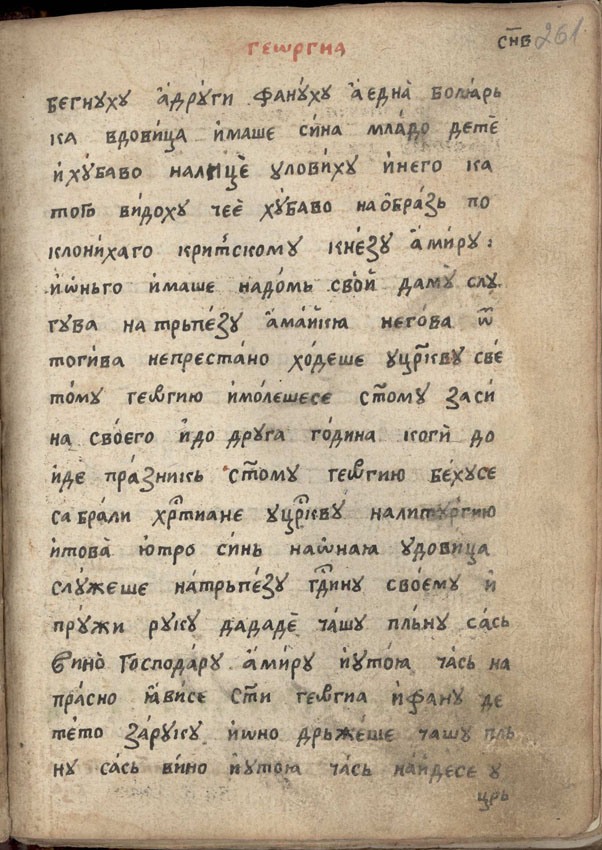 геѡргиа
сн҃в 261
бегнуху а҆дру́ги фануху а҆една̀ боля́рь
ка вдовица и҆маше си́на мла́до дете̑
и҆ху́баво налице̑ уловиху и҆него ка
того̀ ви́доху чеѐ ху́баво нао҆бра́зь по
клони́хаго кри́тскому кне́зу а҆ми́ру :
и҆ѡ҆ньго и҆маше надо́мь сво́й даму̀ слу
гува на трьпе́зу а҆ма́йкю него́ва ѿ
тоги́ва непреста́но хо́деше уцр҃кву све
то́му геѡ́ргию и҆моле́шесе ст҃ому заси́
на своего и҆до друга го́дина коги̑ до
и҆де̑ пра́зникь ст҃ому геѡ́ргию бе́хусе
са́брали хр҃тиане уцр҃кву налитурги́ю
и҆това̀ ю҆тро си́нь наѡ҆наю удовица
слу́жеше натрьпе́зу гд҃ину свое́му и҆
пру́жи руку дададе̑ ча́шу пльну сась
вино̀ Господа́ру а҆ми́ру и҆уто́ю ча́сь на
пра́сно ꙗ҆висе ст҃и геѡ́ргиа и҆фану де
те́то за́руку и҆ѡно дрьже́ше чашу пль
ну сась ви́но и҆уто́ю ча́сь на́йдесе у
црь